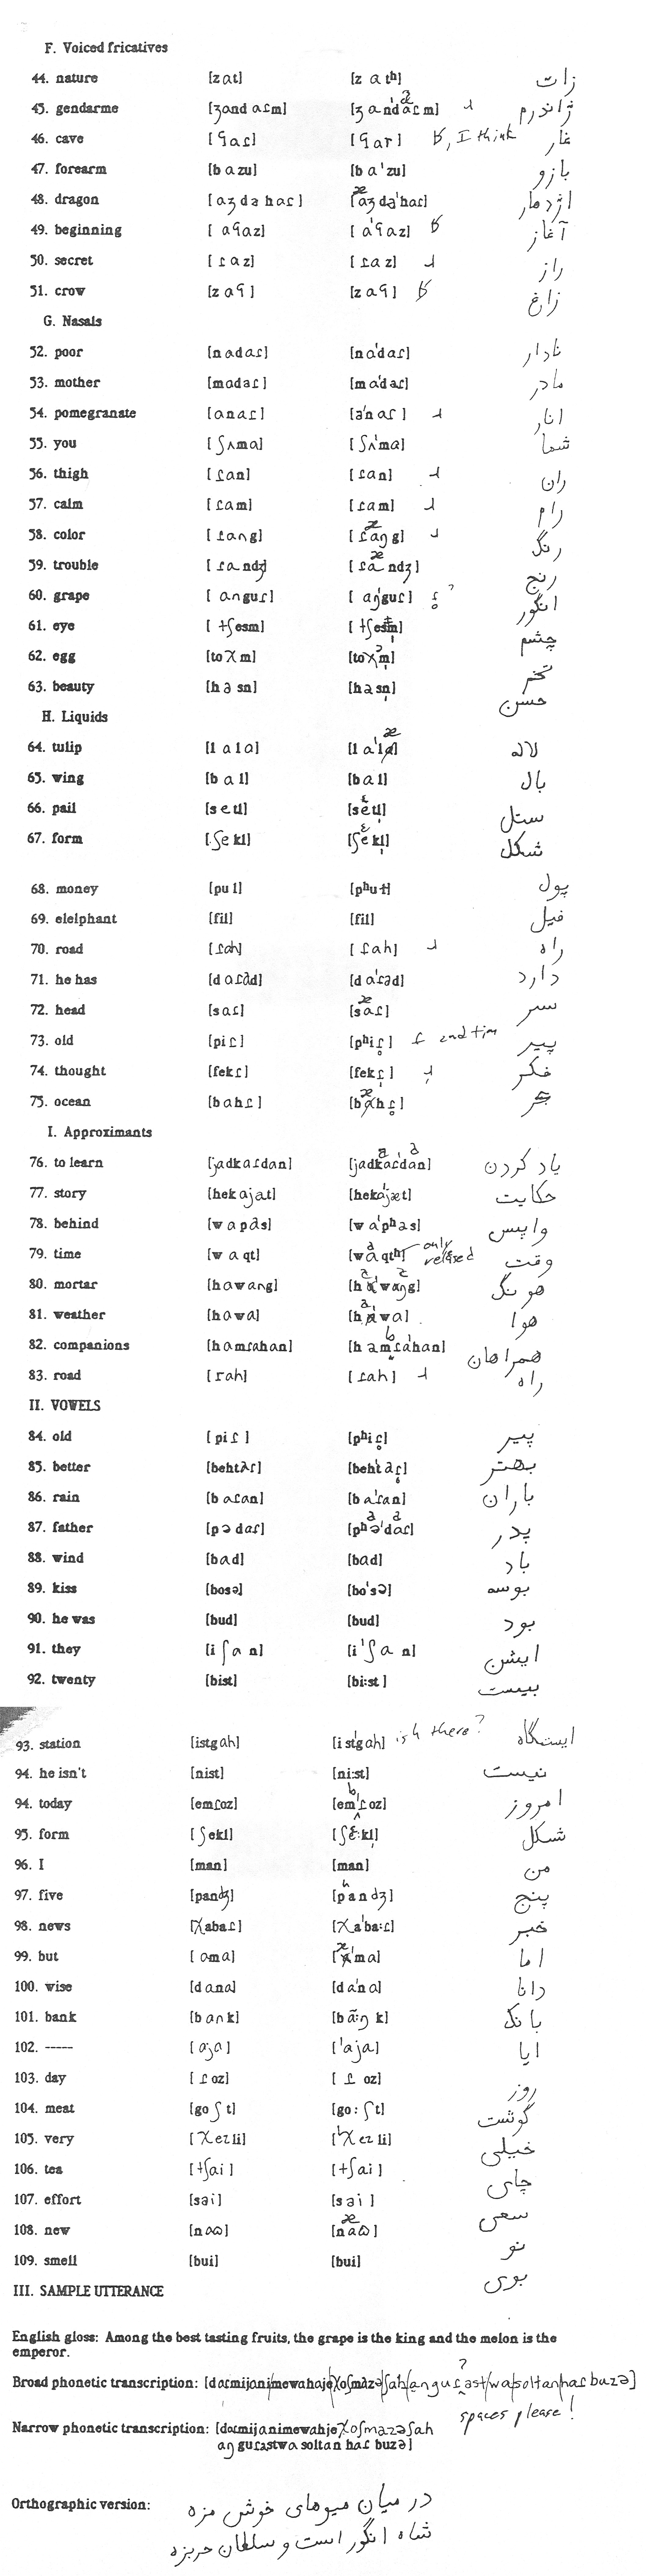 F. Voiced fricatives
44. nature [zat] [z atʰ] زات
45. gendarme [ʒandaɾm] [ʒ a'ndaɾm] ژاندرم
46. cave [ʕaɾ] [ʕar] ʁ, I think غار
47. forearm [bazu] [ba'zu] بازو
48. dragon [aʒdəhaɾ] [aʒdə'haɾ] اژدهار
49. beginning [aʕaz] [a'ʕaz] ʁ آغاز
50. secret [ɾaz] [ɾaz] ɹ راز
51. crow [zaʕ] [zaʕ] ʁ زاغ
G. Nasals
52. poor [nadaɾ] [na'daɾ] نادار
53. mother [madaɾ] [ma'daɾ] مادر
54. pomegranate [anaɾ] [a'naɾ] ɹ انار
55. you [ʃʌma] [ʃʌ'ma] شما
56. thigh [ɾan] [ɾan] ɹ ران
57. calm [ɾam] [ɾam] ɹ رام
58. color [ɾang] [ɾaŋg] ɹ رنگ
59. trouble [ɾandʒ] [ɾandʒ] رنج
60. grape [anguɾ] [aŋ'guɾ] ɾ̥ ? انگور
61. eye [tʃesm] [tʃesm̩] چشم
62. egg [toχm] [toχm̩] تخم
63. beauty [həsn] [həsn̩] حسن
H. Liquids
64. tulip [lala] [la'læ] لاله
65. wing [bal] [bal] بال
66. pail [setl] [setl̩] ستل
67. form [ʃekl] [ʃekl̩] شکل
68. money [pul] [pʰuɫ] پول
69. elelphant [fil] [fil] فیل
70. road [ɾah] [ɾah] ɹ راه
71. he has [daɾəd] [da'ɾəd] دارد
72. head [saɾ] [sæɾ] سر
73. old [piɾ] [pʰiɾ̥] ɾ 2nd tim پیر
74. thought [fekɾ] [fekɾ̩] ɹ̩ فکر
75. ocean [bahɾ] [bæhɾ̥] بحر
I. Approximants
76. to learn [jadkaɾdan] [jadkaɾ'dan] یاد کردن
77. story [hekajat] [heka'jæt] حکایت
78. behind [wapəs] [wa'pʰəs] واپس
79. time [waqt] [waqtʰ] only released وقت
80. mortar [hawang] [ha'waŋg] هونگ
81. weather [hawa] [ha'wa] هوا
82. companions [hamɾahan] [hamɾa'han] همراهان
83. road [rah] [ɾah] ɹ راه
II. VOWELS
84. old [piɾ] [pʰiɾ̥] پیر
85. better [behtʌɾ] [beh'taɾ̥] بهتر
86. rain [baɾan] [ba'ɾan] باران
87. father [pədaɾ] [pʰə'daɾ] پدر
88. wind [bad] [bad] باد
89. kiss [bosə] [bo'sə] بوسه
90. he was [bud] [bud] بود
91. they [iʃan] [i'ʃan] ایشن
92. twenty [bist] [bi:st] بیست
93. station [istgah] [ist'gah] is h there? ایستگاه
94. he isn't [nist] [ni:st] نیست
94. today [emɾoz] [em'ɾoz] امروز
95. form [ʃekl] [ʃɛ:kl̩] شکل
96. I [man] [man] من
97. five [pandʒ] [pʰandʒ] پنج
98. news [χabaɾ] [χa'ba:ɾ] خبر
99. but [ama] [æ'ma] اما
100. wise [dana] [da'na] دانا
101. bank [bank] [bã:ŋk] بانک
102. ----- [aja] ['aja] ایا
103. day [ɾoz] [ɾoz] روز
104. meat [goʃt] [go:ʃt] گوشت
105. very [χezli] ['χezli] خیلی
106. tea [tʃai] [tʃai] چای
107. effort [sai] [sai] سعی
108. new [naɷ] [næɷ] نو
109. smell [bui] [bui] بوی
III. SAMPLE UTTERANCE
English gloss: Among the best tasting fruits, the grape is the king and the melon is the
emperor.
?
Broad phonetic transcription: [daɾmijani|mewahaje|χoʃmazə|ʃah|anguɾ|əst|wa|soltan|haɾbuzə]
spaces please!
Narrow phonetic transcription: [daɾmijanimewahjeχoʃmazəʃah
aŋguɾəstwasoltanhaɾbuzə]
Orthographic version: در میان میوهای خوش مزه
شاه انگور است و سلطان حربزه